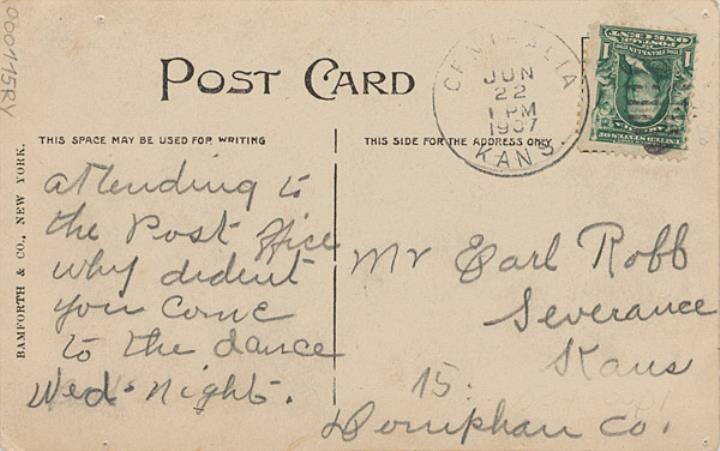 000445RY
POST CARD
CENTRALIA
JUN
22
1 PM
1907
KANS.
THIS SPACE MAY BE USED FOR WRITING
THIS SIDE FOR THE ADDRESS ONLY
BAMFORTH & CO., NEW YORK.
attending to
the Post office
why dident
you come
to the dance
Wed. night.
Mr Earl Robb
Severance
Kans
15.
Doniphan Co.
1
1
ONE CENT
POSTAGE